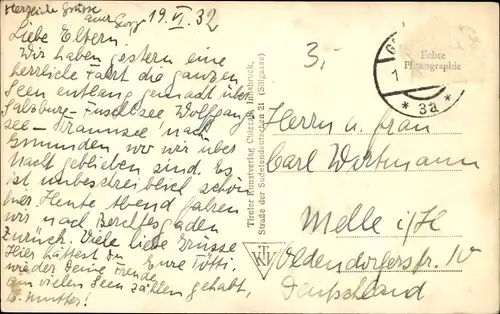 Herzliche Grüsse
euer Georg
19. VI. 32
Liebe Eltern.
Wir haben gestern eine
herrliche Fahrt die ganzen
Seen entlang gemacht über
Salzburg – Fuschlsee Wolfgang
see – Traunsee nach
Gmunden wo wir über
Nacht geblieben sind. Es
ist unbeschreiblich schön
hier Heute Abend fahren
wir nach Berchtesgaden
zurück. Viele liebe Grüsse
Eure Tötti.
Hier hättest Du
wieder Deine Freude
am vielen Seen zählen gehabt,
Mutter!
Tiroler Kunstverlag Chizzali, Innsbruck,
Straße der Sudetendeutschen 21 (Sillgasse)
TKV
3,-
Echte
Photographie
G
1
* 3a *
Herrn u. Frau
Carl Wortmann
Melle i/H
Oldendorferstr. 10
Deutschland